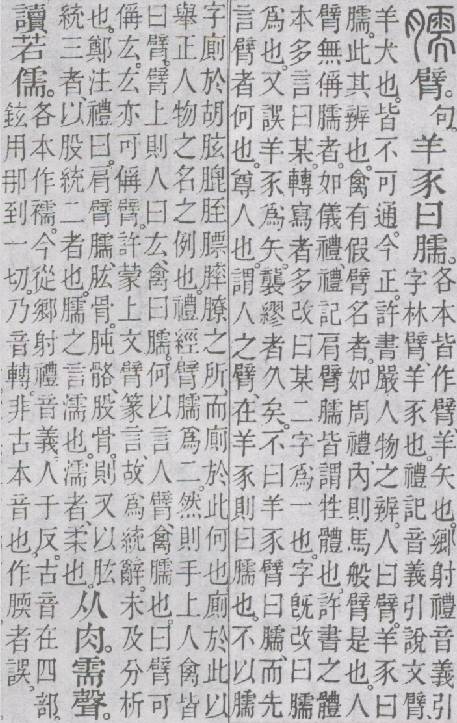 臑臂。句。羊豕曰臑。各本皆作臂、羊矢也。鄉射禮音義引
字林臂羊豕也。禮記音義引說文臂
羊犬也。皆不可通。今正。許書嚴人物之辨。人曰臂。羊豕曰
臑。此其辨也。禽有假臂名者。如周禮內則馬般臂是也。人
臂無偁臑者。如儀禮禮記肩臂臑皆謂牲體也。許書之體
本多言曰某。轉寫者多改曰某二字爲一也字。旣改曰臑
爲也。又誤羊豕爲矢。襲繆者久矣。不曰羊豕臂曰臑。而先
言臂者何也。尊人也。謂人之臂、在羊豕則曰臑也。不以臑
字廁於胡胘膍胵膘膟膫之所、而廁於此何也。廁於此以
舉正人物之名之例也。禮經臂臑爲二。然則手上人禽皆
曰臂。臂上則人曰厷、禽曰臑。何以言人臂禽臑也。曰臂可
偁厷。厷亦可偁臂。許蒙上文臂篆言、故爲統辭。未及分析
也。鄭注禮曰。肩臂臑、肱骨。肫骼股骨。則又以肱
統三者、以股統二者也。臑之言濡也。濡者、柔也。从肉。需聲。
讀若儒。各本作襦。今從鄉射禮音義人于反。古音在四部。
鉉用那到一切、乃音轉、非古本音也。作腝者誤。